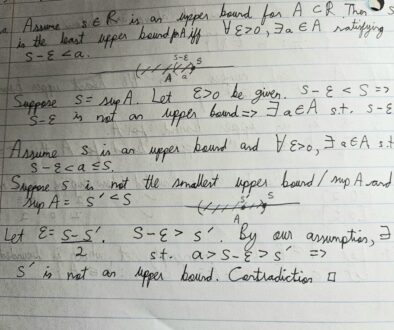 Assume s ∈ R is an upper bound for A ⊂ R. Then s
is the least upper bound for A iff ∀ ε>0, ∃ a ∈ A satisfying
s-ε < a.
s-ε s
A a
Suppose s = sup A. Let ε>0 be given. s-ε < s =>
s-ε is not an upper bound => ∃ a ∈ A s.t. s-ε
Assume s is an upper bound and ∀ ε>0, ∃ a ∈ A s.t
s-ε < a ≤ s.
Suppose s is not the smallest upper bound / sup A and
sup A = s' < s
s
A
Let ε = s-s'/2. s-ε > s'. By our assumption, ∃
s.t. a > s-ε > s' =>
s' is not an upper bound. Contradiction □